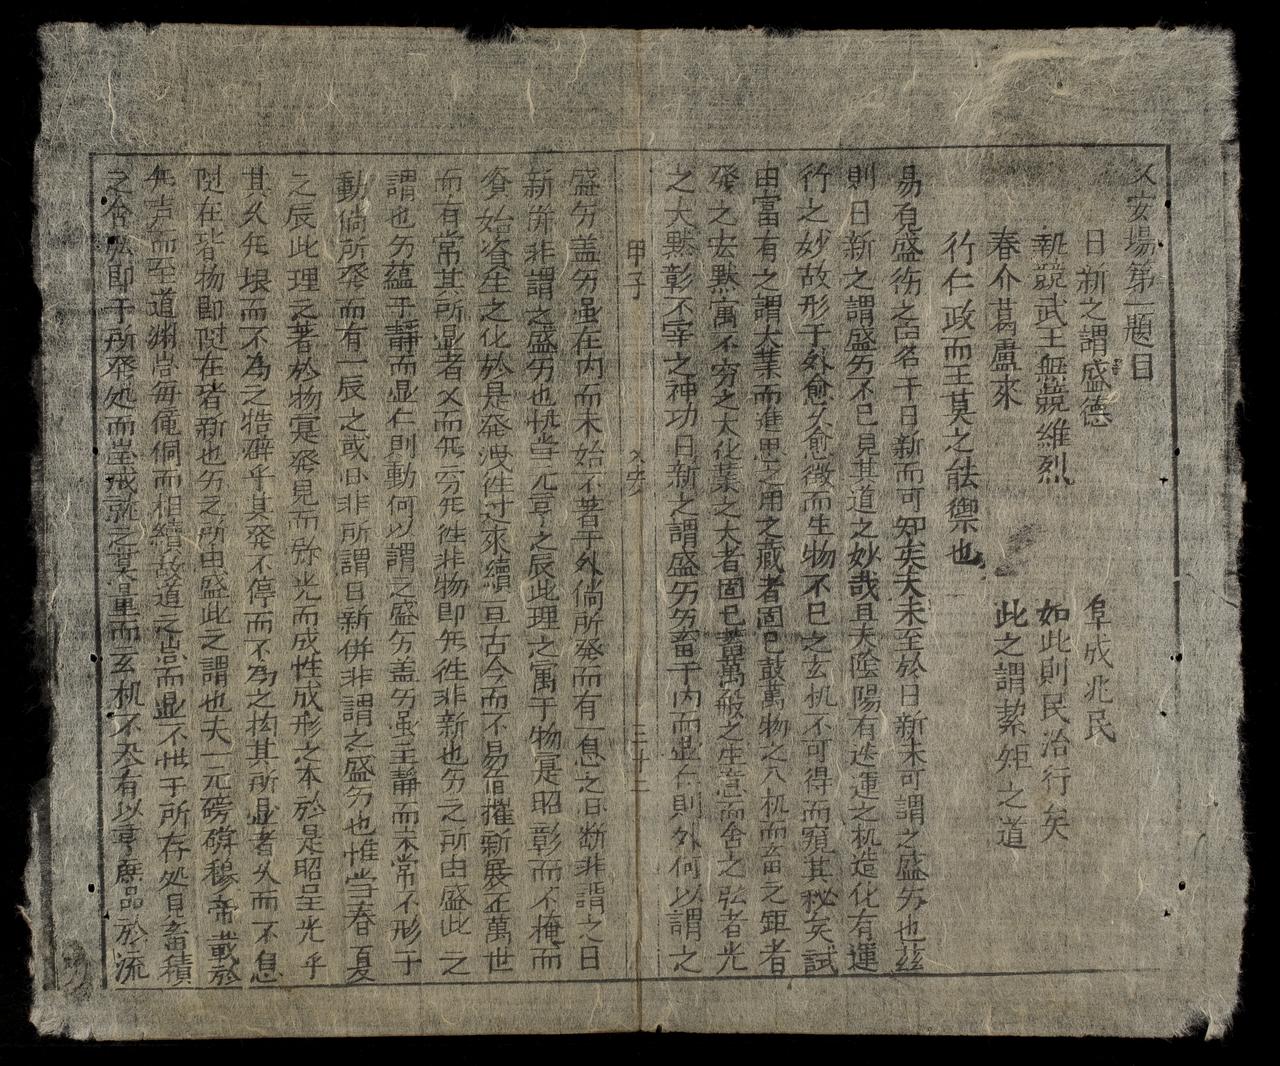 乂安場第一題目
日新之謂盛德　阜成兆民
執競武王無競維烈　如此則民治行矣
春介葛盧來　此之謂絜矩之道
行仁政而王莫之能禦也
易有盛德之名于日新而可知矣夫未至於日新未可謂之盛歹也茲
則日新之謂盛歹不已見其道之妙哉且夫陰陽有迭運之机造化有運
行之妙故形于外愈久愈徵而生物不已之玄机不可得而窺其秘矣試
由富有之謂大業而進思之用之藏者固已鼓萬物之入机而畜之鉅者
發之玄默寓不穷之大化業之大者固已蓄萬般之生意而舍之弘者光
之大默彰不宰之神功日新之謂盛歹歹畜于内而显仁則外何以謂之
甲子　乂安　三十二
盛歹盖歹虽在内而未始不著于外倘所発而有一息之旧断非謂之日
新併非謂之盛歹也惟当元亨之辰此理之寓于物寔昭彰而不掩而
資始資生之化於是発洩徃过來續亘古今而不易旧摧新展歪萬世
而有常其所显者久而旡穷旡徃非物即旡徃非新也歹之所由盛此之
謂也歹蕴于靜而显仁則動何以謂之盛歹盖歹虽主靜而未常不形于
動倘所発而有一辰之或旧非所謂日新併非謂之盛歹也惟当春夏
之辰此理之著於物寔発見而弥光而成性成形之本於是昭呈光乎
其久旡壞而不為之牿癖乎其発不停而不為之拘其所显者久而不息
随在皆物即随在皆新也歹之所由盛此之謂也夫一元磅礴穆帝載於
旡声而至道渊岂毎僮侗而相續故道之岂而显不世于所存処見畜積
之舍弘即于所発処而岂成就之寔量而玄机不忒有以亨庶品於流